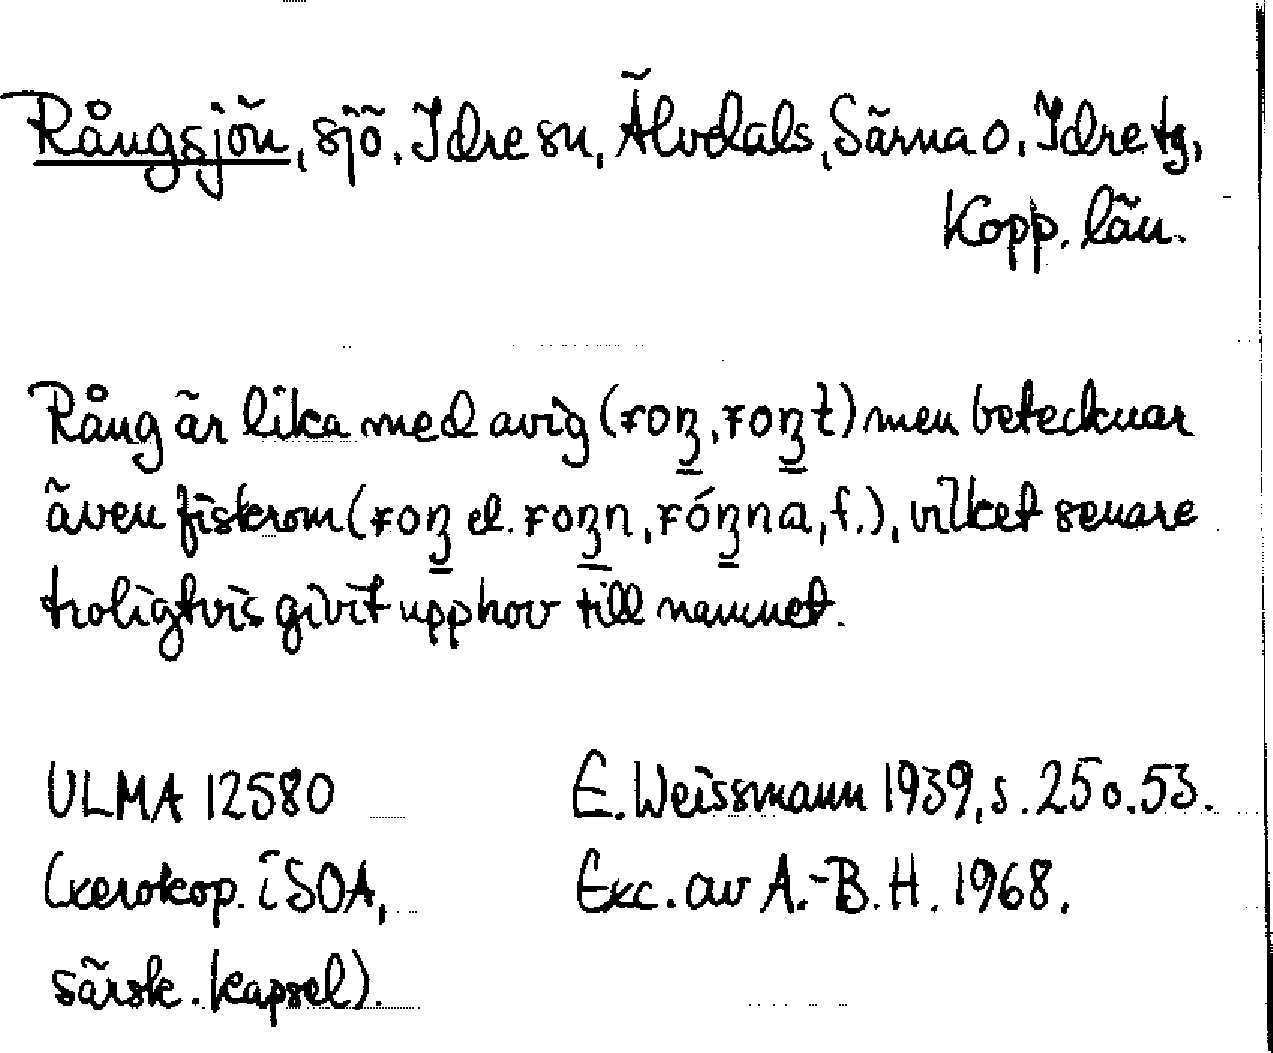 Rångsjön, sjö. Idre sn, Älvdals, Särna o. Idre tg,
Kopp. län.
Rång är lika med avig (roŋ, roŋt) men betecknar
även fiskrom (roŋ el. roŋn, róŋna, f.), vilket senare
troligtvis givit upphov till namnet.
ULMA 12580
(xerokop. i SOA,
särsk. kapsel).
E. Weissmann 1939, s. 25 o. 53.
Exc. av A.-B. H. 1968.